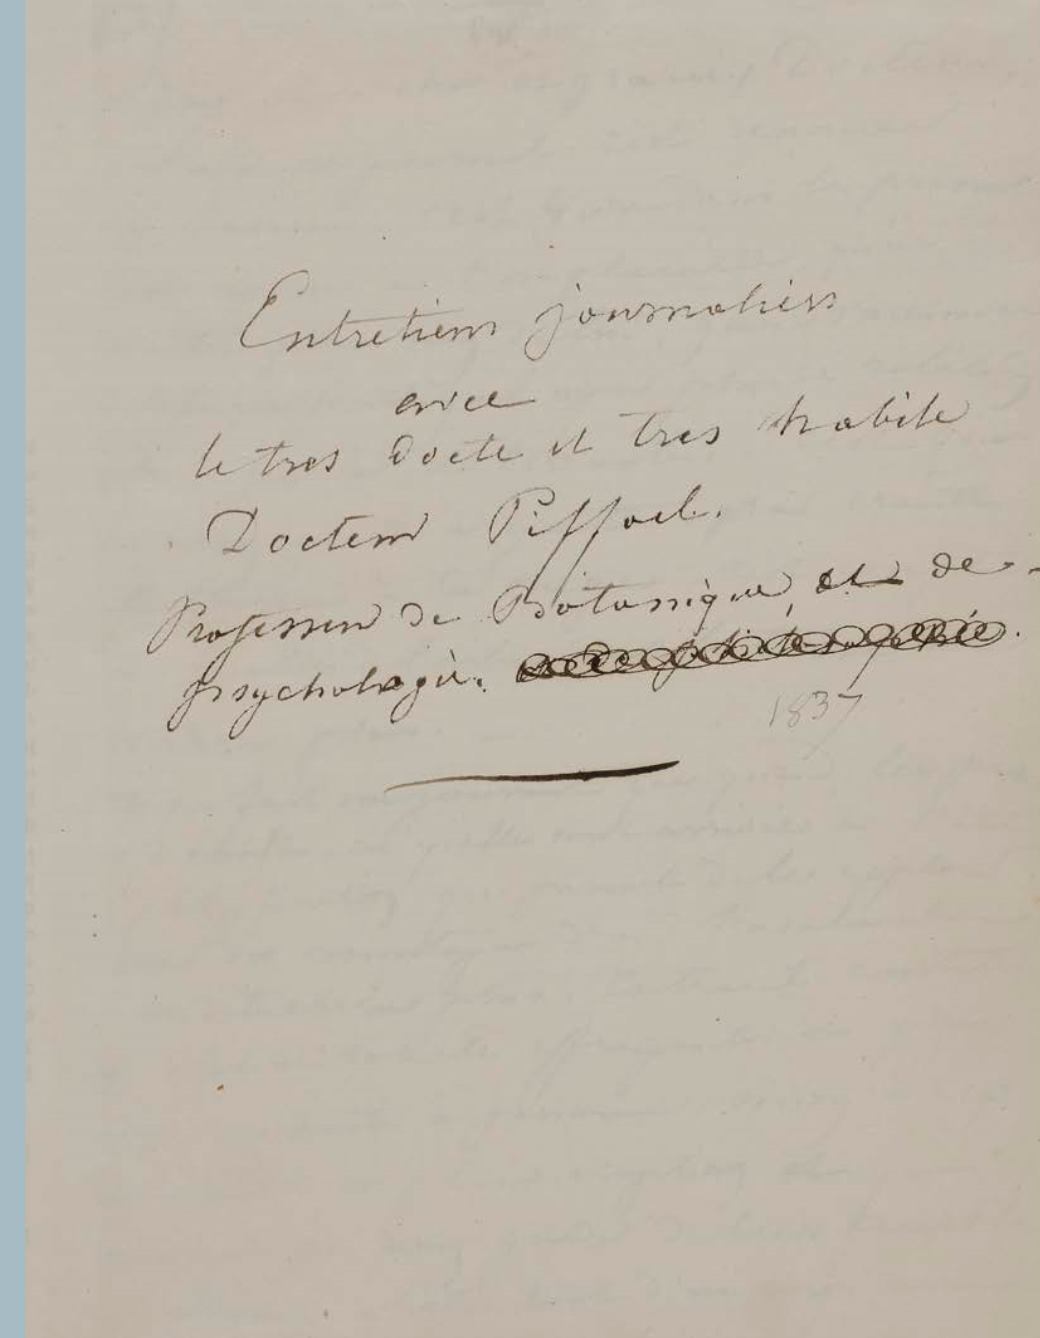 Entretiens journaliers
avec
le tres docte et tres habile
Docteur Piffoel.
Professeur de Botanique, et de
psychologie.
1837